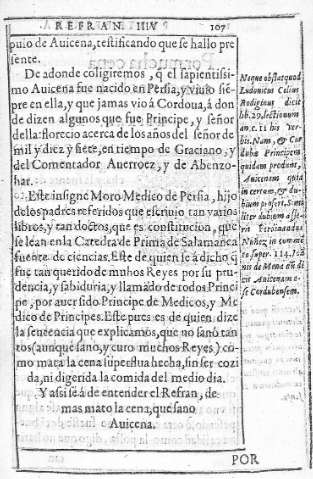 REFRAN IIIV 107
puio de Auicena, testificando que se hallo pre
sente.
De adonde coligiremos, q̃ el sapientisi-
mo Auicena fue nacido en Persia, y viuio siẽ
pre en ella, y que jamas vió a Cordoua, á don
de dizen algunos que fue Principe, y señor
della: florecio acerca de los años del señor de
mil y diez y siete, en tiempo de Graciano, y
del Comentador Auerroez, y de Abenzo-
har.
Este insigne Moro Medico de Persia, hijo
de los padres referidos que escriuio tan varios
libros, y tan doctos, que es constitucion, que
se lean en la Catedra de Prima de Salamanca
fuente de ciencias. Este de quien se á dicho q̃
fue tan querido de muhos Reyes por su pru
dencia, y sabiduria, y llamado de todos Princi
pe, por auer sido Principe de Medicos, y Me
dico de Principes. Este pues es de quien dize
la sentencia que explicamos, que no sanó tan
tos (aunque sano, y curo muchos Reyes) có-
mo mata la cena superflua hecha, sin ser cozi
da, ni digerida la comida del medio dia.
Y assi se á de entender el Refran, de
mas mato la cena, que sano
Auicena.
Neque obstat quod
Ludouicus Celius
Rodiginus dicit
lib. 29. lectionum
an. c. 11 his ver-
bis. Nam, & Cor
dubæ Principem
quidam produnt,
Auicenam quia
incertum, & du-
bium profert. Simi
liter dubium asse-
rit Ferdinandus
Nuñez in commẽ
to super. 114. Ioã
nis de Mena vbi di
cit Auicenam es-
se Cordubensem.
POR